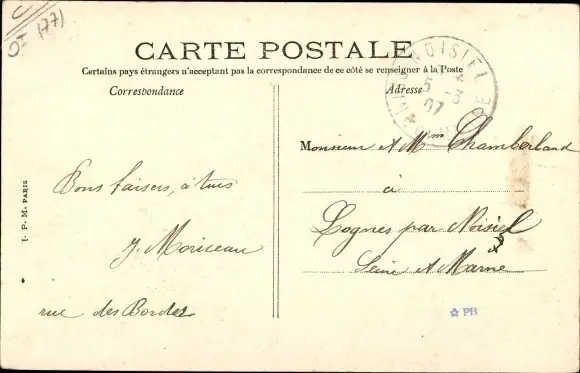 OI (77)
CARTE POSTALE
Certains pays étrangers n'acceptent pas la correspondance de ce côté se renseigner à la Poste
Correspondance
Adresse
NOISIEL
5 - 3
07
Monsieur et Mme Chamberland
à
Lognes par Noisiel
Seine et Marne
Bons baisers, à tous
J. Moriceau
rue des Bordes
I. P. M. PARIS
PB